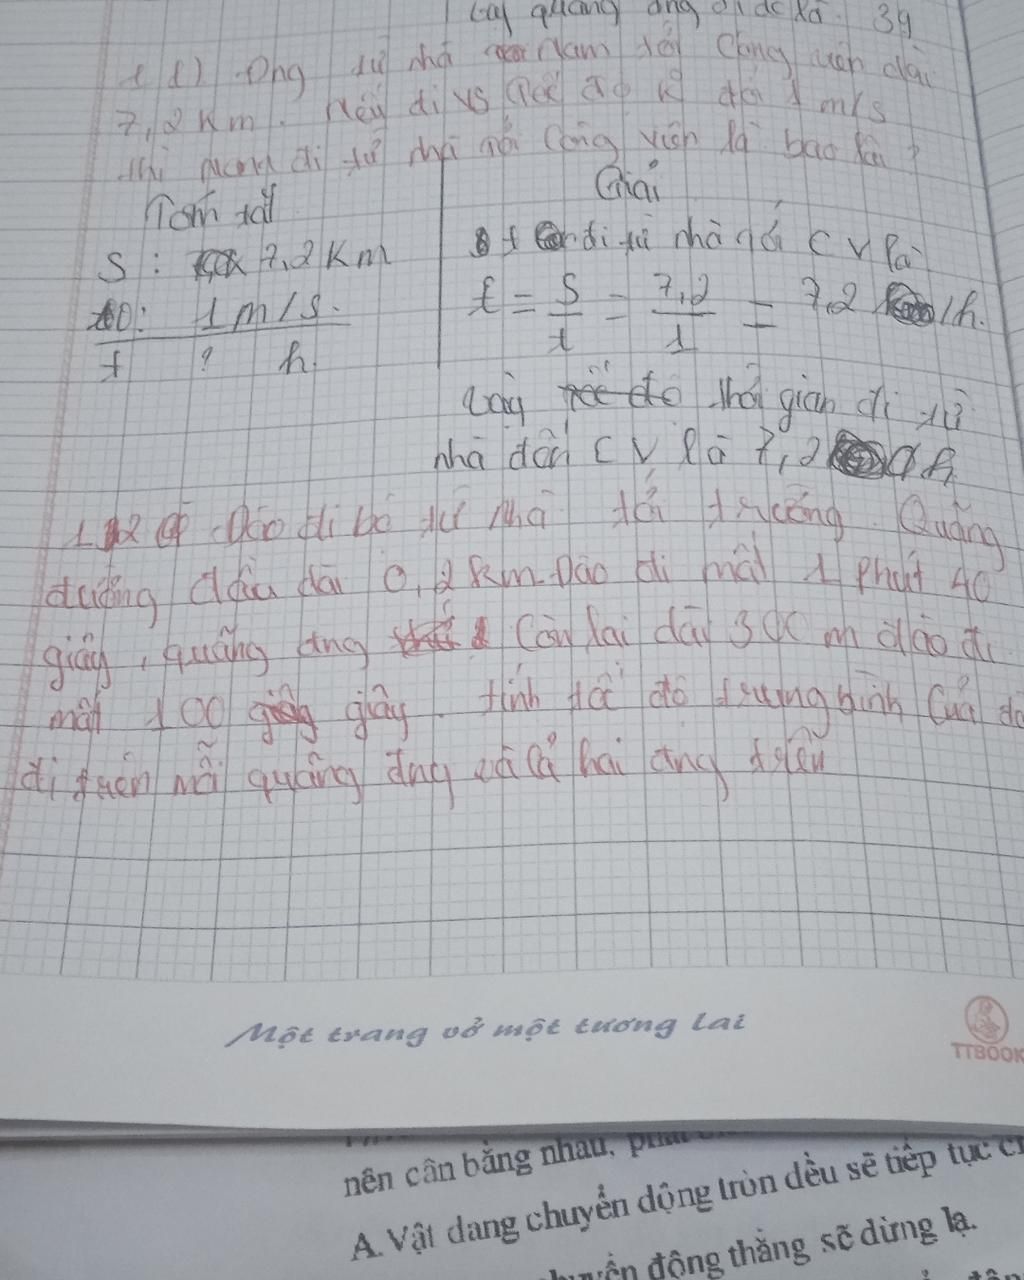 quãng đng đi dc là 39
11) Đng từ nhà Nam tới Công viên dài
7,2 Km. Nếu đi vs tốc độ k đổi 1 m/s
thì đi từ nhà tới Công viên là bao lâu ?
Tóm tắt
S : 7,2 Km
1 m/s.
t ? h.
Giải
t đi từ nhà tới CV là
t = S/t = 7,2/1 = 7,2 h.
Vậy thời gian đi từ
nhà đến CV là 7,2 h
12 Đào đi bộ từ nhà tới trường. Quãng
đường đầu dài 0,2 km Đào đi mất 1 phút 40
giây, quãng đng Còn lại dài 300 m đào đi
mất 100 giây. tính tốc độ trung bình Của
đi trên mỗi quãng đng và cả hai đng trên
Một trang vở một tương lai
TTBOOK
nên cân bằng nhau,
A. Vật đang chuyển động tròn đều sẽ tiếp tục
động thẳng sẽ dừng lạ.